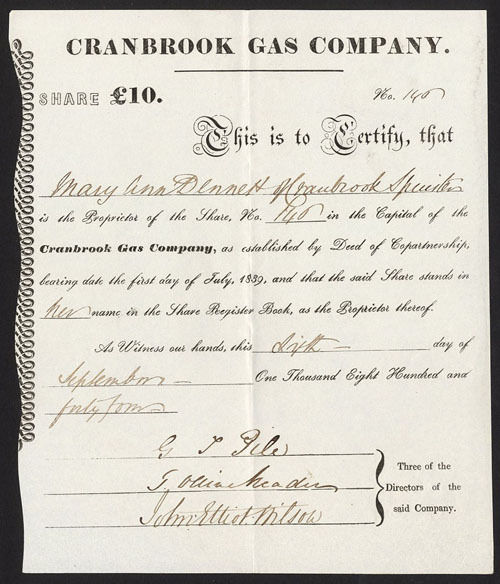 CRANBROOK GAS COMPANY.
SHARE £10.
No. 146
This is to Certify, that
Mary Ann Dennett of Cranbrook Spinster
is the Proprietor of the Share, No. 146 in the Capital of the
Cranbrook Gas Company, as established by Deed of Copartnership,
bearing date the first day of July, 1839, and that the said Share stands in
her name in the Share Register Book, as the Proprietor thereof.
As Witness our hands, this Sixth day of
September One Thousand Eight Hundred and
forty four
G P Pile
T.
John Elliot Wilson
Three of the
Directors of the
said Company.